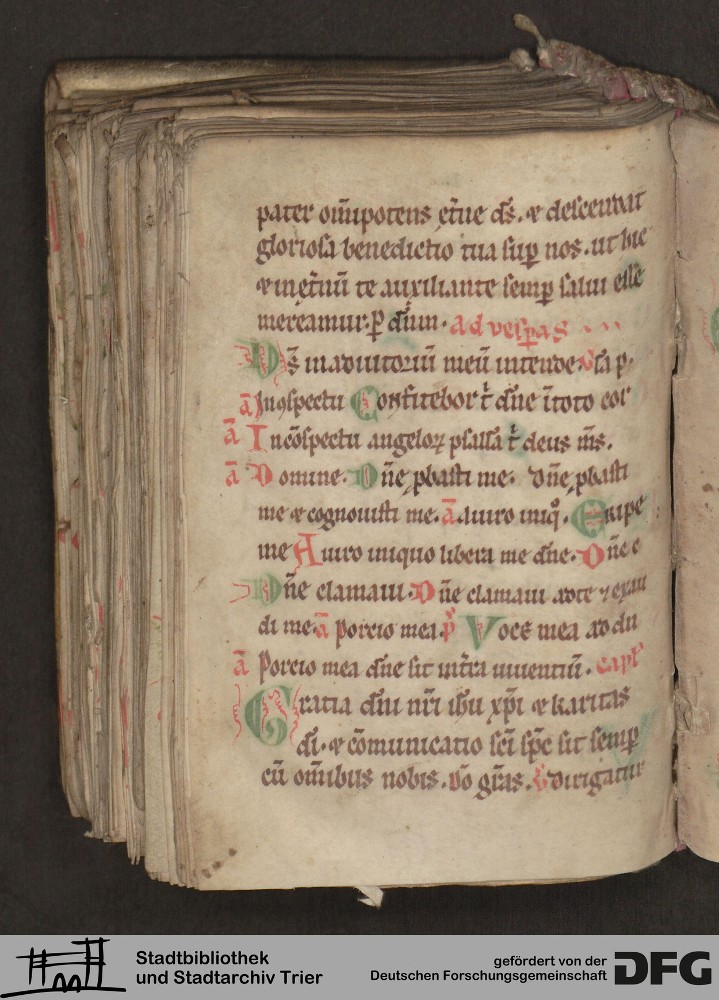 pater om̅ipotens et̅ne ds̅. & descendat
gloriosa benedictio tua sup̱ nos. ut hic
& inet̅nu̅ te auxiliante semp̱ salui esse
mereamur. p̱ dn̅m. ad uesp̱as
Ds̅ in adiutoriu̅ meu̅ intende. sa p.
a̅ In ꝯspectu Confitebor t̅ dn̅e i̅ toto cor
a̅ In co̅spectu angeloꝝ psalla̅ t̅ deus m̅s.
a̅ Domine. Dn̅e ꝓbasti me. dn̅e ꝓbasti
me & cognouisti me. a̅ A uiro iniq̊. Eripe
me A uiro iniquo libera me dn̅e. Dn̅e c
Dn̅e clamaui. Dn̅e clamaui ad te ⁊ exau
di me a̅ Porcio mea. p̅s Voce mea ad dn̅
a̅ Porcio mea dn̅e sit in t̅ra uiuentiu̅. cap̅l
Gratia dn̅i nr̅i ihu̅ xp̅i & karitas
di̅. & co̅municatio sc̅i sp̅c sit semp̱
cu̅ om̅ibus nobis. do̅ gr̅as. V̅ dirigatur
Stadtbibliothek
und Stadtarchiv Trier
gefördert von der
Deutschen Forschungsgemeinschaft
DFG